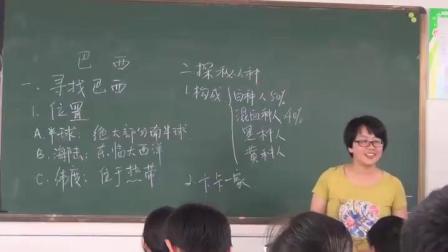 巴西
一、寻找巴西
1.位置
A.半球：绝大部分南半球
B.海陆：东临大西洋
C.纬度：位于热带
二.探秘人种
1.构成
白种人50%
混血种人40%
黑种人
黄种人
2.卡卡一家